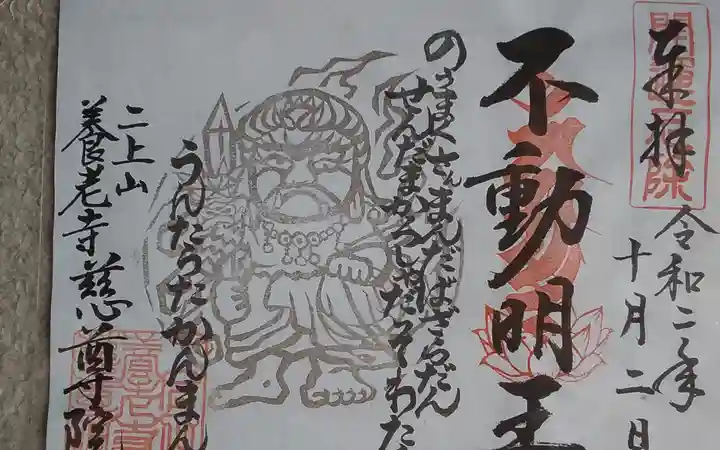 奉拝
令和二年
十月二日
不動明王
のうまくさんまんだばざらだん
せんだまかろしゃだそわた
うんたらたかんまん
二上山
養老寺慈尊院